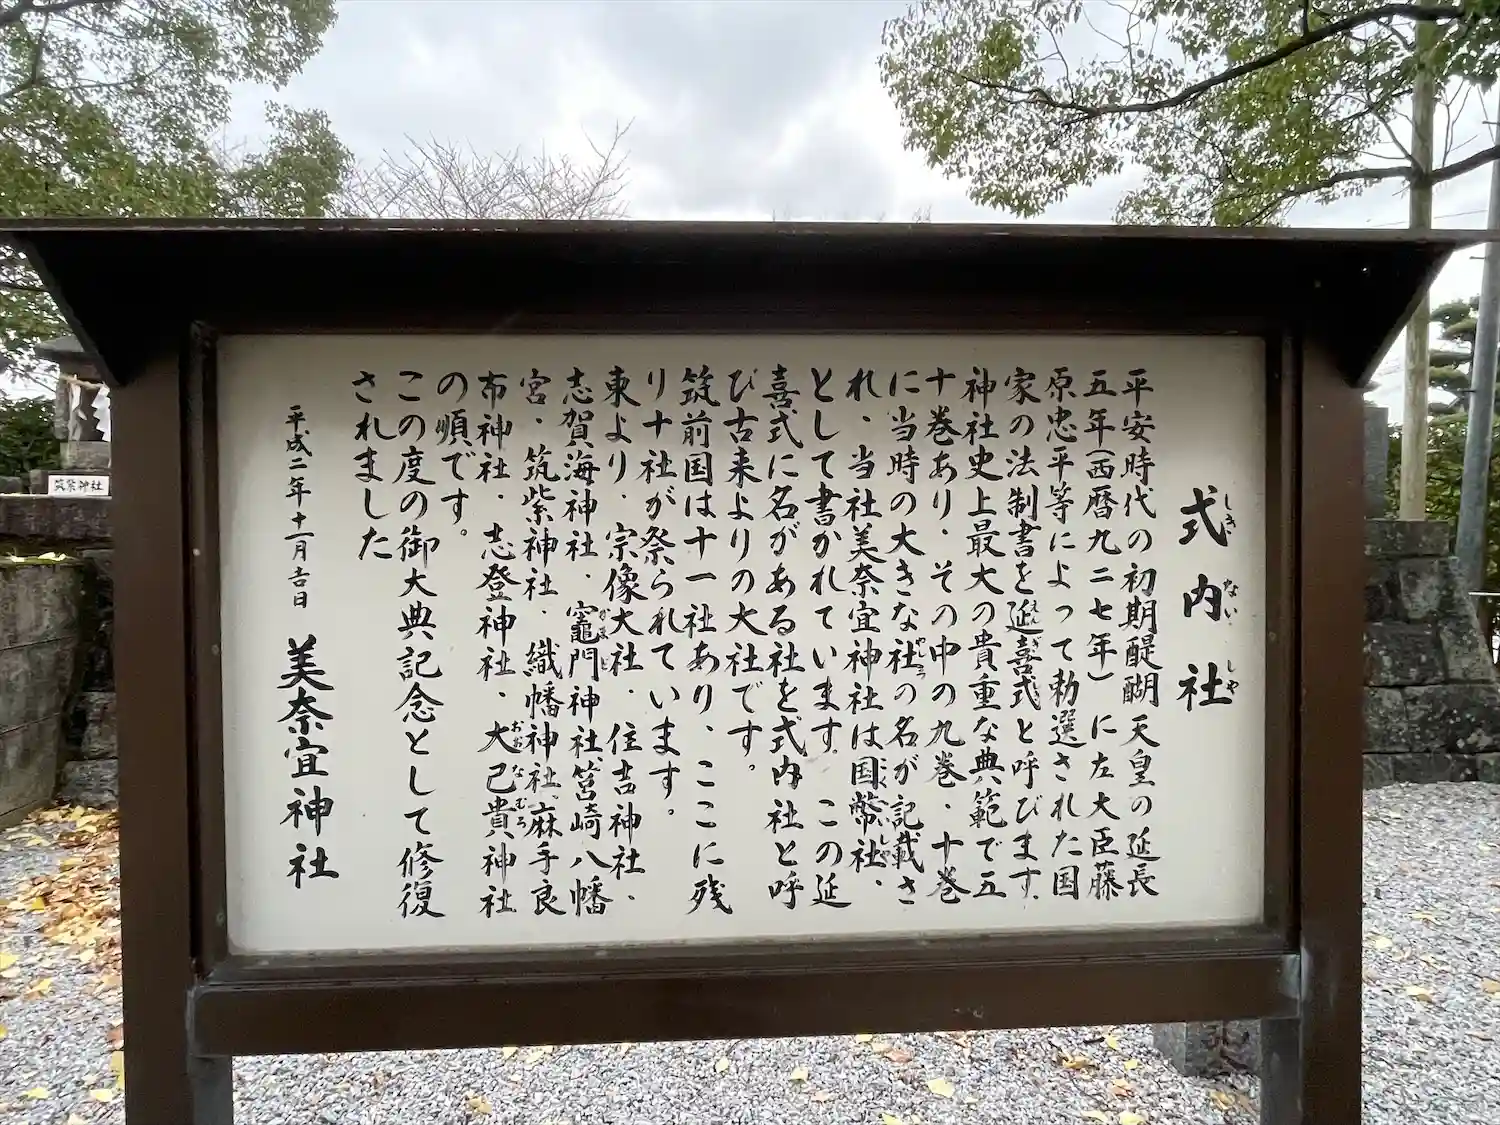 式内社
しき ない しゃ
平安時代の初期醍醐天皇の延長
五年(西暦九二七年)に左大臣藤
原忠平等によって勅選された国
家の法制書を延喜式と呼びます.
えんぎ
神社史上最大の貴重な典範で五
十巻あり、その中の九巻、十巻
に当時の大きな社の名が記載さ
やしろ
れ、当社美奈宜神社は国幣社、
こくへいしゃ
として書かれています。この延
喜式に名がある社を式内社と呼
び古来よりの大社です。
筑前国は十一社あり、ここに残
り十社が祭られています。
東より、宗像大社、住吉神社、
志賀海神社、竈門神社、筥崎八幡
かまど
宮、筑紫神社、織幡神社、麻手良
布神社、志登神社、大己貴神社
おおなむち
の順です。
この度の御大典記念として修復
されました
平成二年十一月吉日 美奈宜神社
筑紫神社